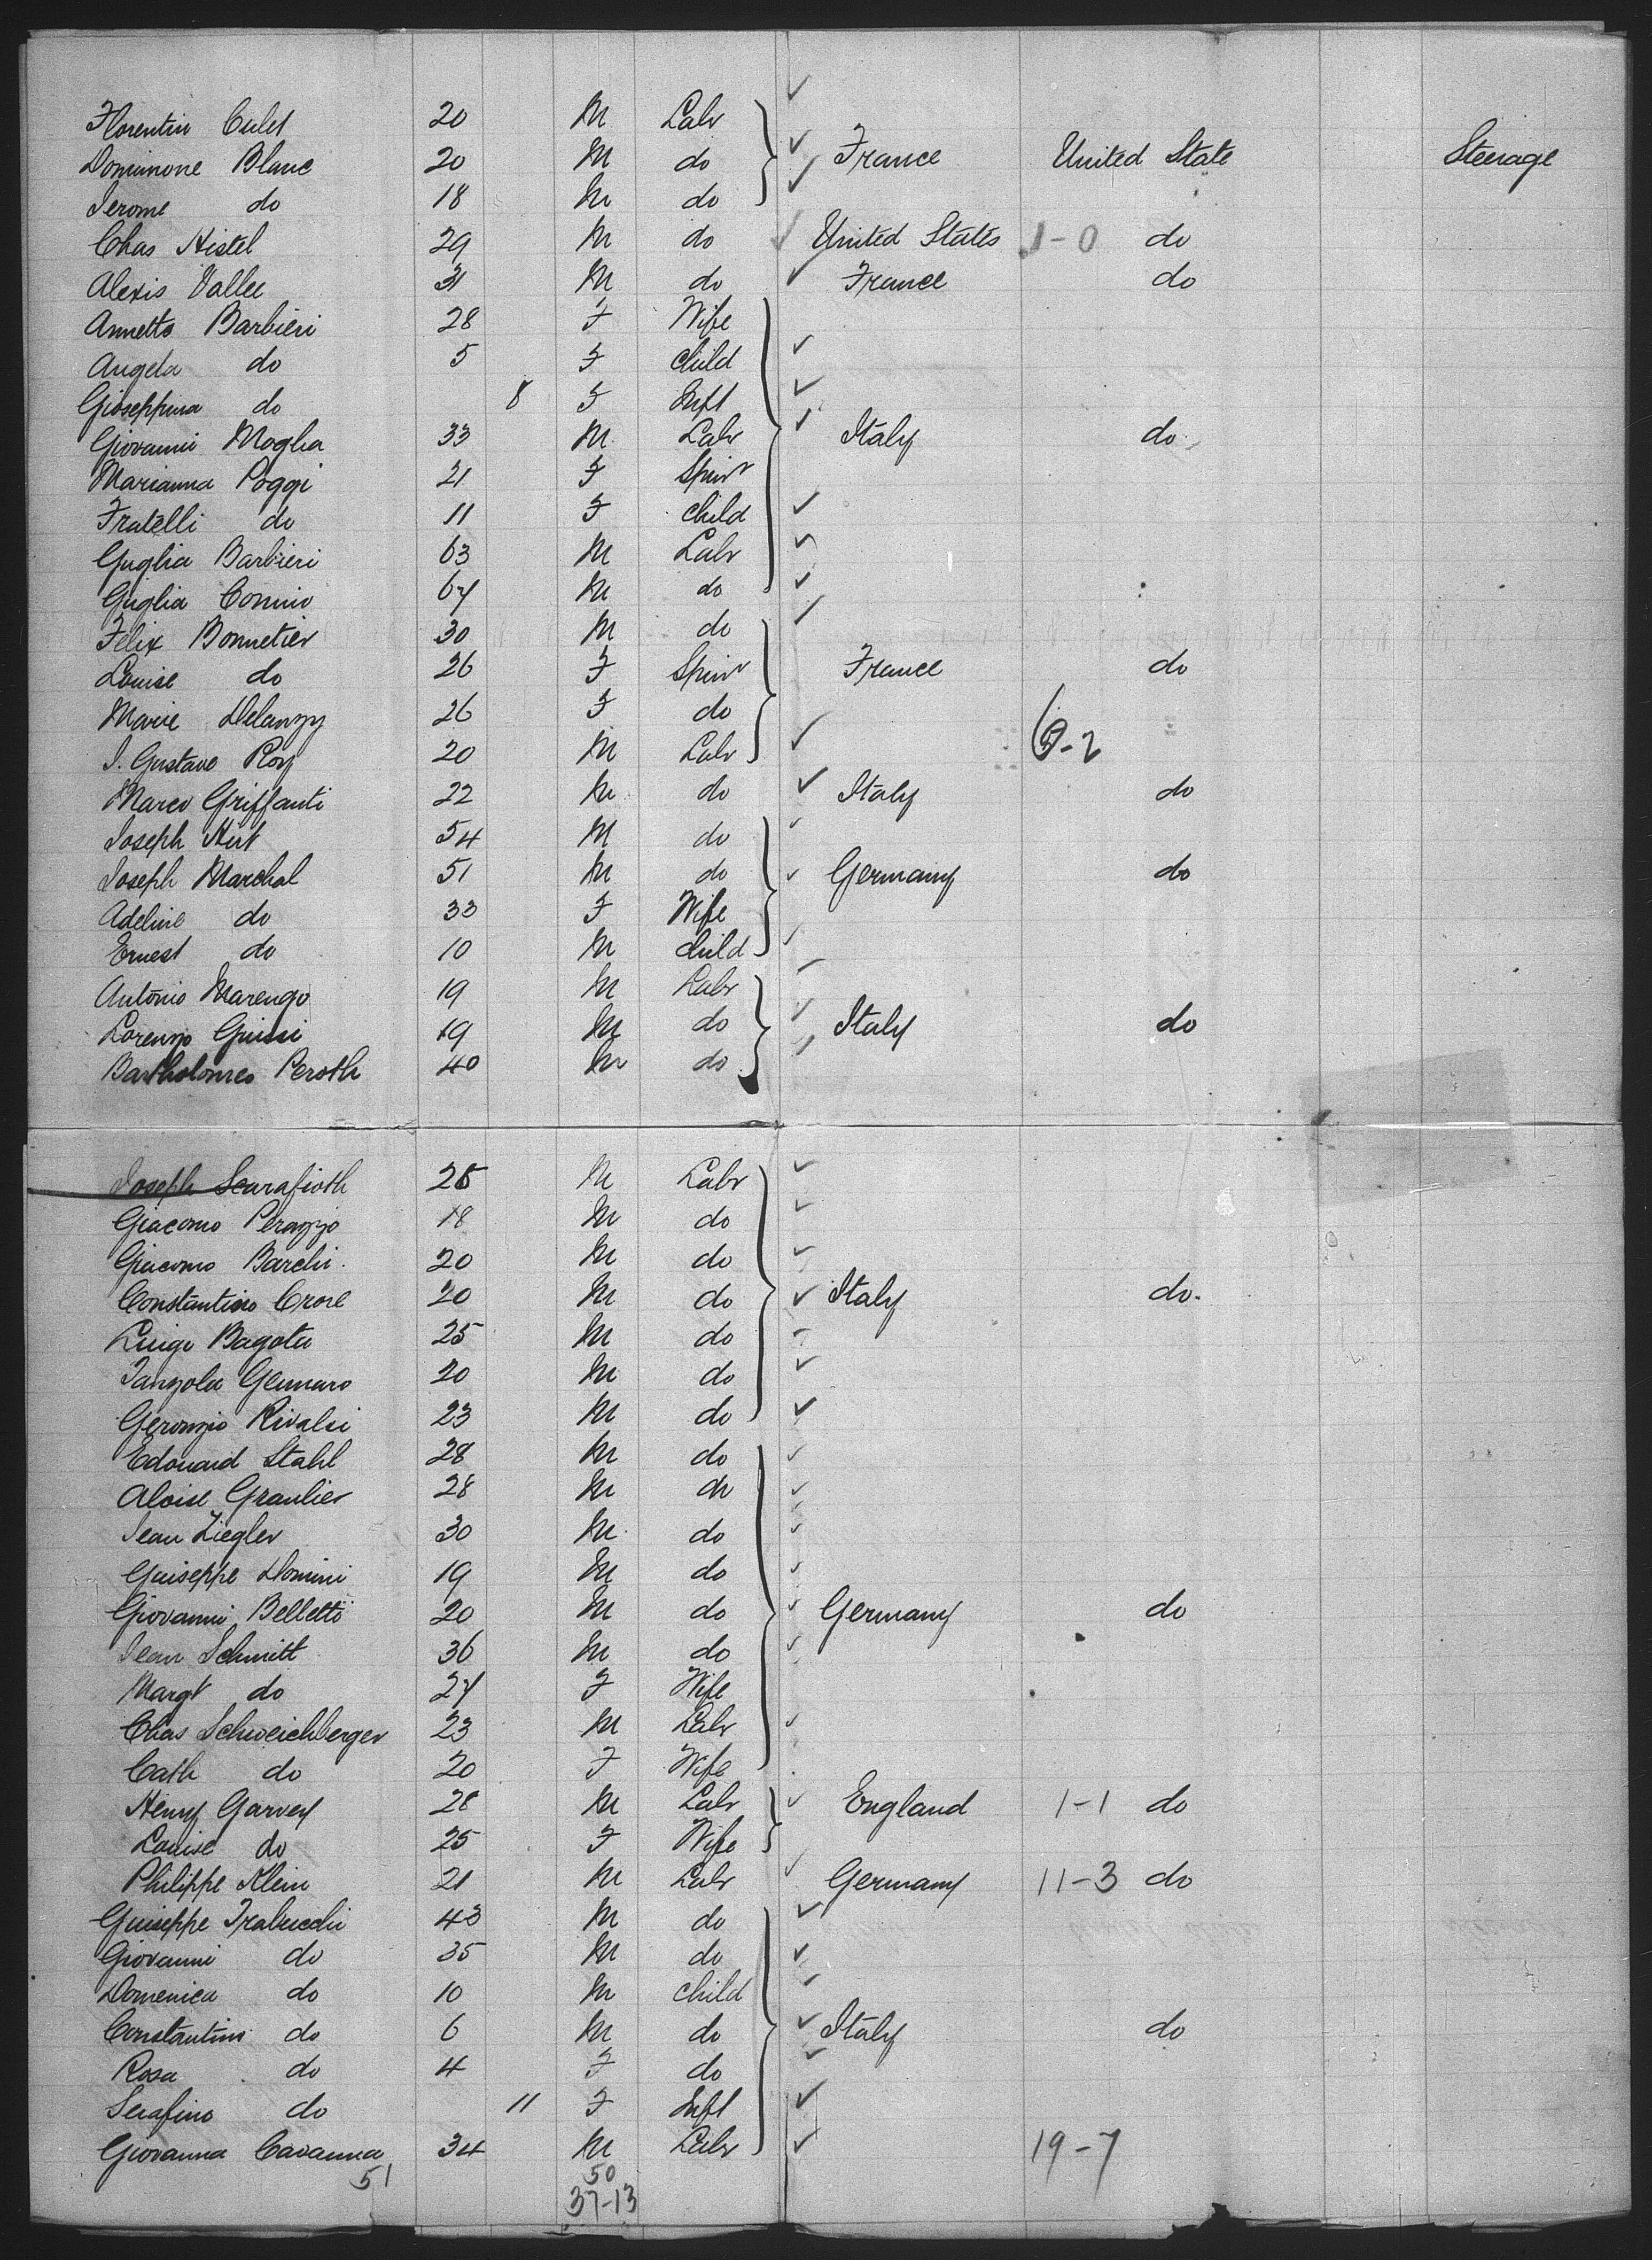 Florentin Culet 20 M Labr
Dominione Blanc 20 M do France United State Steerage
Jerome do 18 M do
Chas Histel 29 M do United States 1-0 do
Alexis Vallee 31 M do France do
Annetta Barbieri 28 F Wife
Angela do 5 F child
Gioseppina do 8 F Inft
Giovanni Moglia 33 M Labr Italy do
Marianna Poggi 21 F Spinr
Fratelli do 11 F child
Guglia Barbieri 63 M Labr
Guglia Connio 67 M do
Felix Bonnetier 30 M do
Louise do 26 F Spinr France do
Marie Delanzy 26 F do
J. Gustave Roy 20 M Labr -2
Marco Griffanti 22 M do Italy do
Joseph Hirt 54 M do
Joseph Marchal 51 M do Germany do
Adeline do 33 F Wife
Ernest do 10 M child
Antonio Marengo 19 M Labr
Lorenzo Guissi 19 M do Italy do
Bartholomeo Peroth 40 M do
Joseph Scarafioth 25 M Labr
Giacomo Perazzo 18 M do
Giacomo Barchi 20 M do
Constantino Crore 20 M do Italy do.
Luigi Bagota 25 M do
Tanzola Gennaro 20 M do
Geronzio Rivalsi 23 M do
Edouard Stahl 28 M do
Aloise Graulier 28 M do
Jean Ziegler 30 M do
Guiseppe Domini 19 M do
Giovanni Belletti 20 M do Germany do
Jean Schmitt 36 M do
Margt do 27 F Wife
Chas Schweichberger 23 M Labr
Cath do 20 F Wife
Henry Garvey 28 M Labr England 1-1 do
Louise do 25 F Wife
Philippe Klein 21 M Labr Germany 11-3 do
Guiseppe Trabucchi 43 M do
Giovanni do 35 M do
Domenica do 10 M child
Constantino do 6 M do Italy do
Rosa do 4 F do
Serafino do 11 F Inft
Giovanna Cavanna 34 M Labr 19-7
51 50
37-13